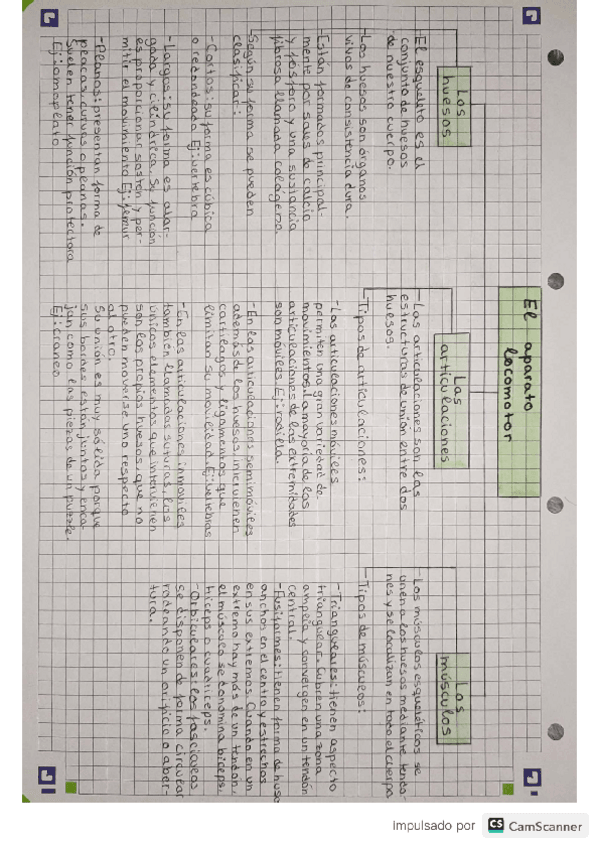 El aparato
locomotor
Los
huesos
-El esqueleto es el
conjunto de huesos
de nuestro cuerpo.
-Los huesos son órganos
vivos de consistencia dura.
-Están formados principal
mente por sales de calcio
y fósforo y una sustancia
fibrosa llamada colágeno
-Según su forma se pueden
clasificar:
-Cortos: su forma es cúbica
o redondeada Ej: vertebra
-Largos: su forma es alar-
gada y cilíndrica. Su función
es proporcionar sostén y per-
mitir el movimiento Ej: femur
-Planos: presentan forma de
placas curvas o planas.
Suelen tener función protectora
Ej: omoplato
Las
articulaciones
-Las articulaciones son las
estructuras de unión entre dos
huesos.
-Tipos de articulaciones:
-Las articulaciones móviles
permiten una gran variedad de
movimientos. La mayoría de las
articulaciones de las extremidades
son móviles. Ej: rodilla.
-En las articulaciones semimóviles
además de los huesos, intervienen
cartílagos y ligamentos que
limitan su movilidad. Ej: vertebras
-En las articulaciones inmóviles
también llamadas suturas, los
únicos elementos que intervienen
son los propios huesos, que no
pueden moverse uno respecto
al otro.
Su unión es muy sólida porque
sus bordes están juntos y enca-
jan como las piezas de un puzzle.
Ej: craneo.
Los
músculos
-Los músculos esqueléticos se
unen a los huesos mediante tendo-
nes y se localizan en todo el cuerpo
-Tipos de músculos:
-Triangulares: tienen aspecto
triangular. Cubren una zona
amplia y convergen en un tendón
central.
-Fusiformes: tienen forma de huso
anchos en el centro y estrechos
en sus extremos. Cuando en un
extremo hay más de un tendón,
el músculo se denomina bíceps,
tríceps o cuadríceps.
-Orbiculares: los fascículos
se disponen de forma circular
rodeando un orificio o aber-
tura.
Impulsado por CS CamScanner